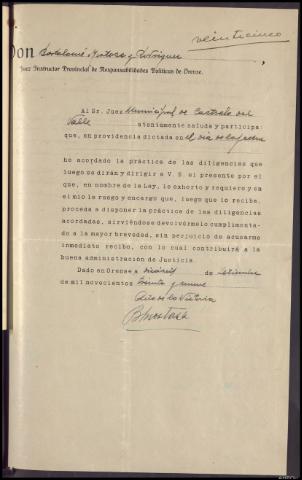 veinticinco
Don Bartolomé Mostaza y Rodriguez
Juez Instructor Provincial de Responsabilidades Políticas de Orense.
Al Sr. Juez Municipal de Castrelo del
Valle
atentamente saluda y participa:
que, en providencia dictada en el día de la fecha
ho acordado la práctica de las diligencias que
luego se dirán y dirigir a V. S. el presente por el
que, en nombre de la Ley, lo exhorto y requiero y en
el mío le ruego y encargo que, luego que lo reciba,
proceda a disponer la práctica de las diligencias
acordadas, sirviéndose devolvérmelo cumplimenta-
do a la mayor brevedad, sin perjuicio de acusarme
inmediato recibo, con lo cual contribuirá a la
buena administración de Justicia.
Dado en Orense a de
de mil novecientos treinta y nueve
Año de la Victoria